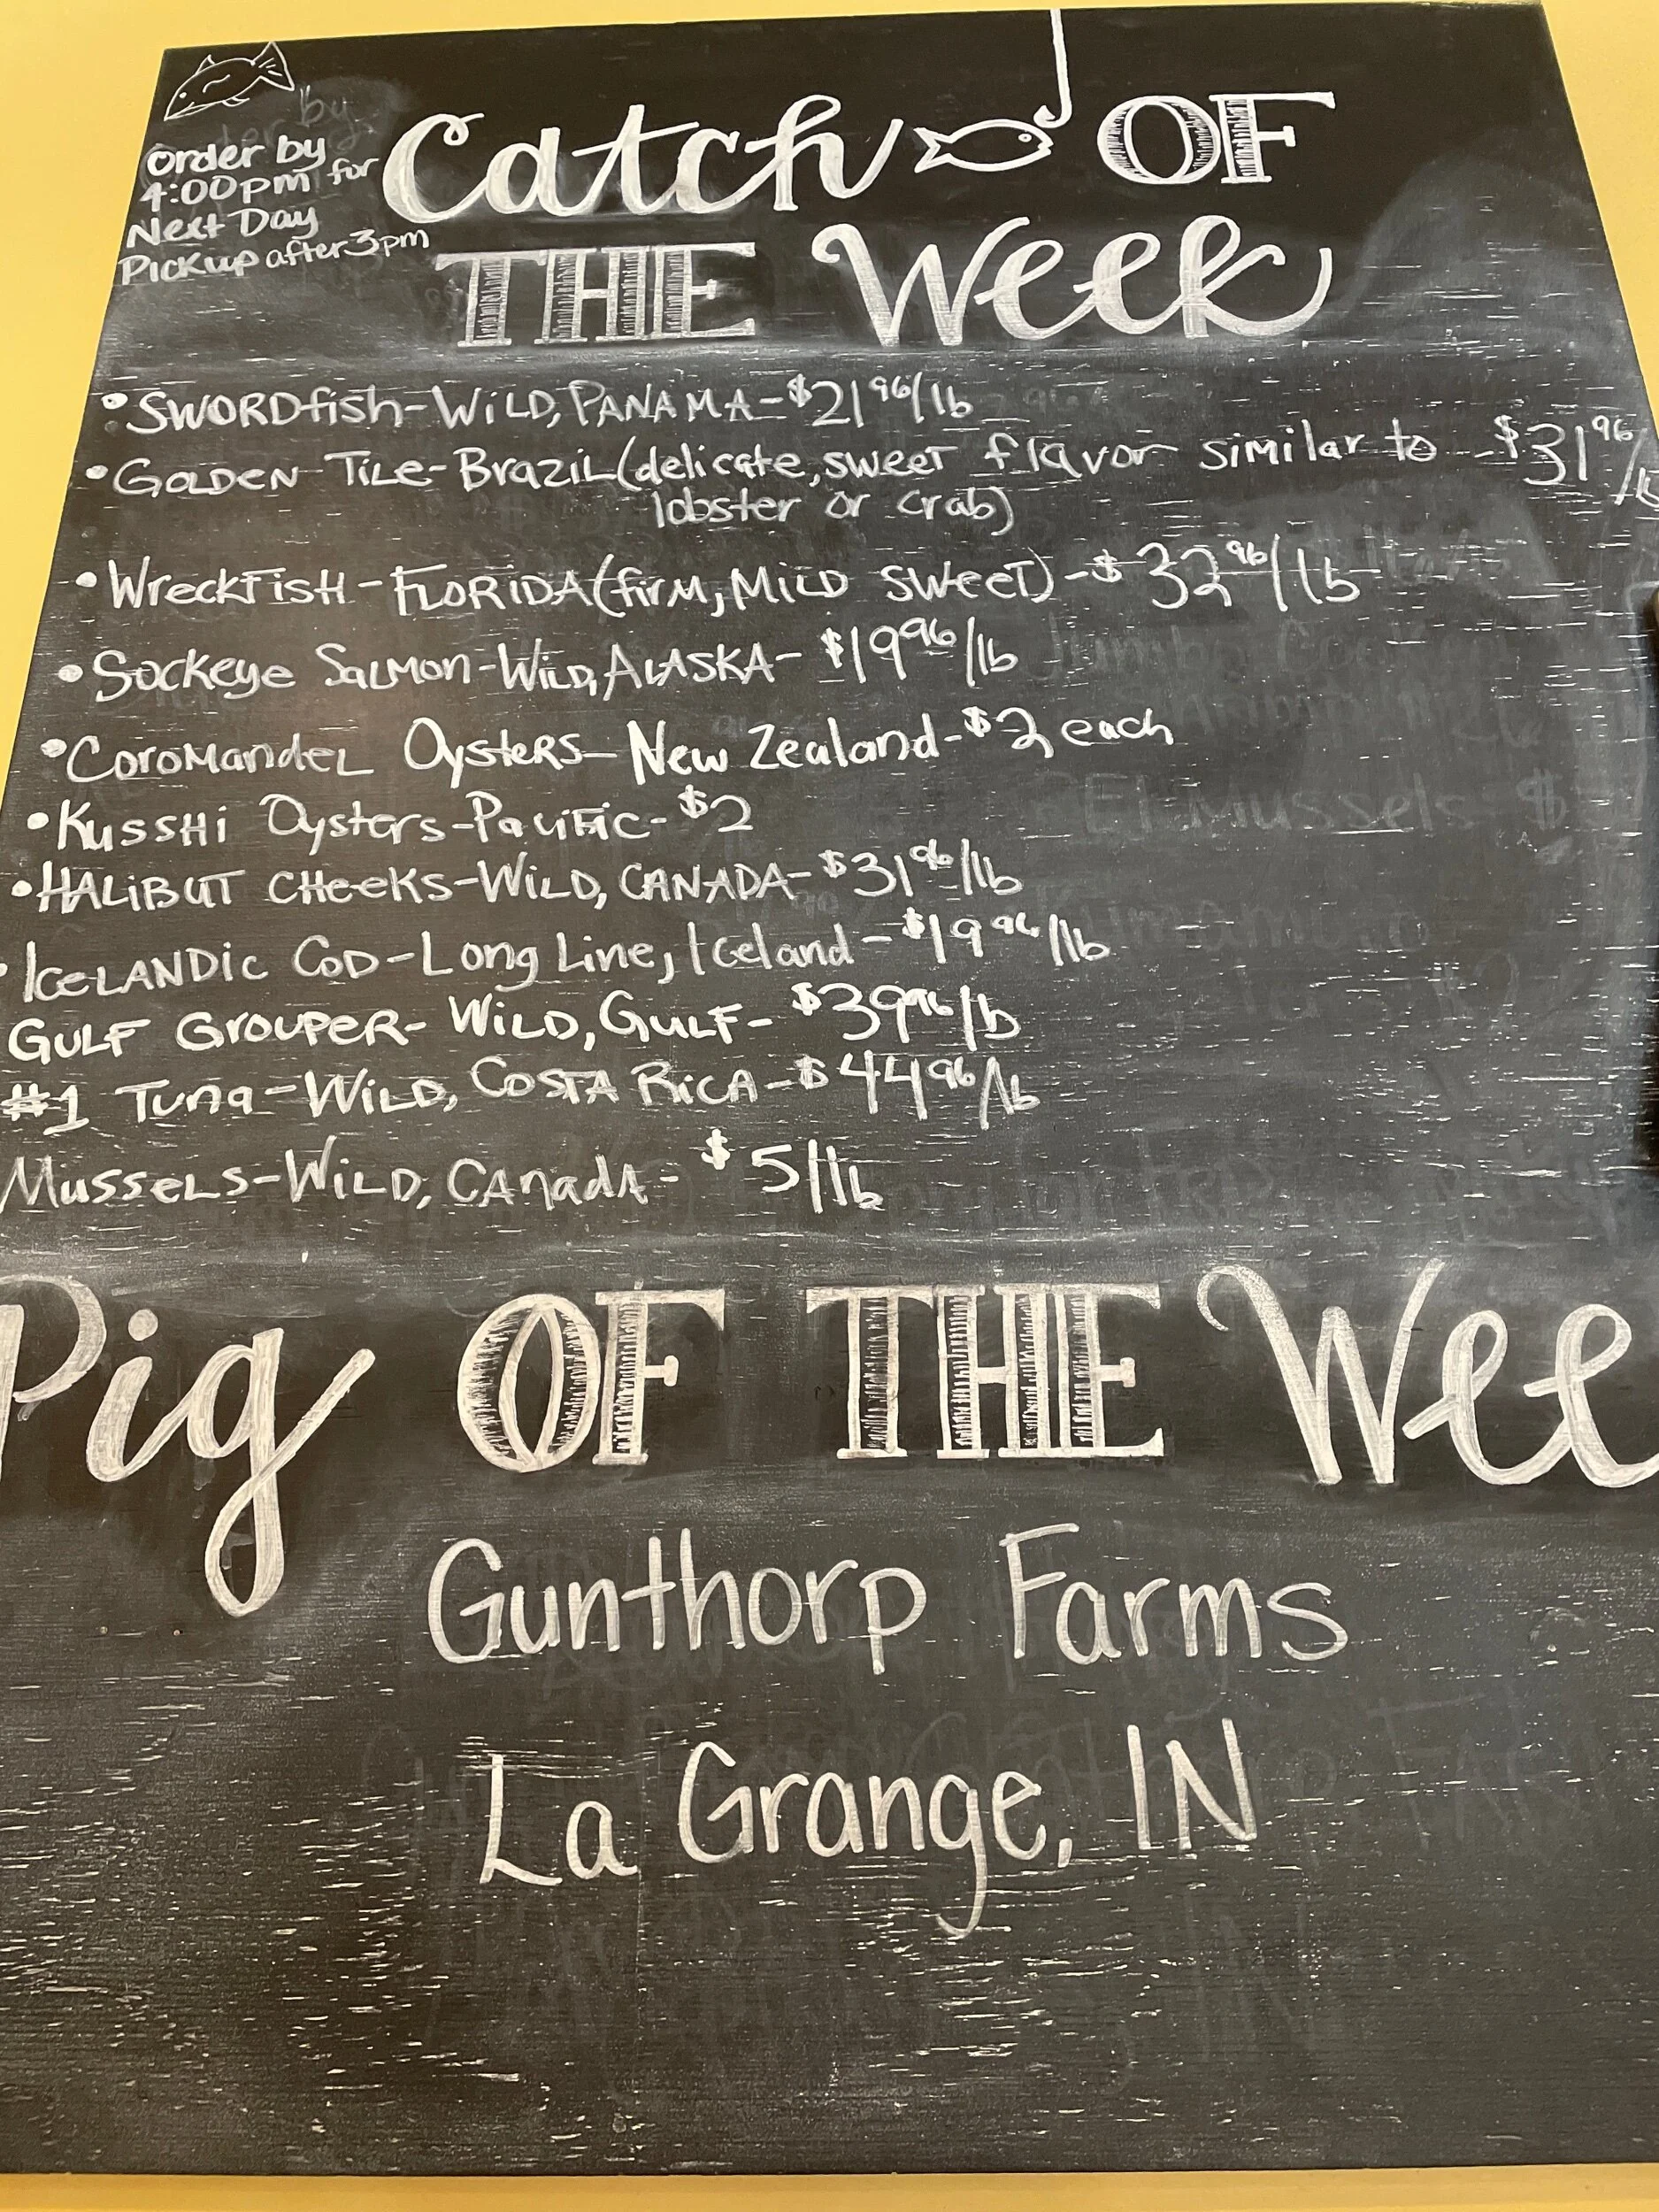 Order by
4:00pm for
Next Day
Pickup after 3pm
Catch OF
THE Week
• SWORDfish-WiLD, PANAMA-$21 96/lb
• GOLDEN TILE-Brazil (delicate, sweet flavor similar to -$31 96/lb
lobster or crab)
• WreckFisH-FLORIDA (firm, MiLD sweet)-$32 96/lb
• Sockeye SaLMon-WiLD, ALASKA-$19 96/lb
• CoroMandeL OysteRS-New Zealand-$2 each
• KussHi Oysters-Pacific-$2
• HALiBUT CHeeKS-WiLD, CANADA-$31 96/lb
• IceLANDic CoD-Long Line, Iceland-$19 96/lb
GULF GROUPER-WiLD, GULF-$39 96/lb
#1 Tuna-WiLD, COSTA RiCA-$44 96/lb
MusseLS-WiLD, CAnadA-$5/lb
Pig OF THE Wee
Gunthorp Farms
La Grange, IN